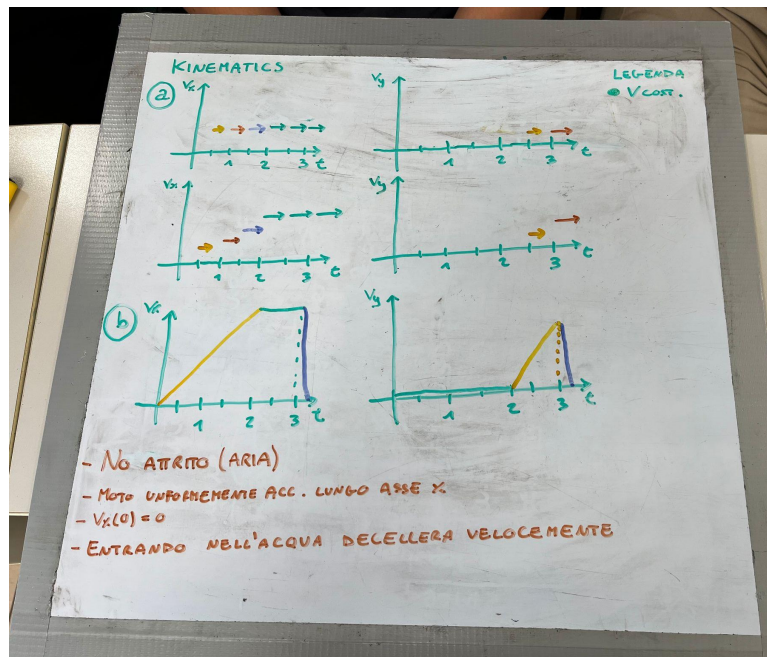 KINEMATICS
LEGENDA
• V COST.
a
Vx
1 2 3 t
Vy
1 2 3 t
Vx
1 2 3 t
Vy
1 2 3 t
b
Vx
1 2 3 t
Vy
1 2 3 t
- NO ATTRITO (ARIA)
- MOTO UNFORMEMENTE ACC. LUNGO ASSE X
- Vx(0) = 0
- ENTRANDO NELL'ACQUA DECELLERA VELOCEMENTE